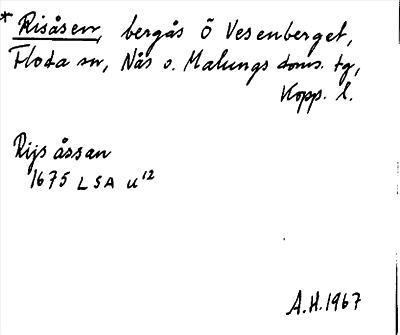 * Risåsen, bergås Ö Vesenberget,
Floda sn, Nås o. Malungs doms. tg,
Kopp. l.
Rijs åssan
1675 LSA u¹²
A.H. 1967